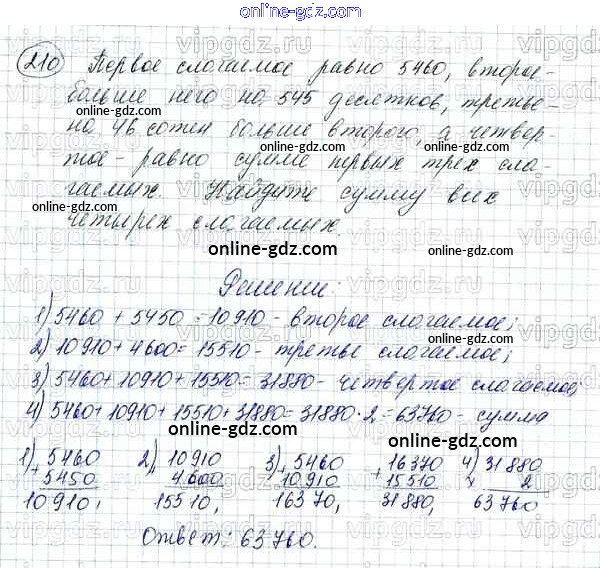 online-gdz.com
210 Первое слагаемое равно 5460, второе-
больше него на 545 десятков, третье-
на 46 сотен больше второго, а четвер-
тое - равно сумме первых трех сла-
гаемых. Найдите сумму всех
четырех слагаемых.
online-gdz.com
Решение:
1) 5460 + 5450 = 10910 - второе слагаемое;
2) 10910 + 4600 = 15510 - третье слагаемое;
3) 5460 + 10910 + 15510 = 31880 - четвертое слагаемое;
4) 5460 + 10910 + 15510 + 31880 = 31880 · 2 = 63760 - сумма
online-gdz.com
1) 5460 2) 10910 3) 5460 16370 4) 31880
+ 5450 + 4600 + 10910 + 15510 × 2
10910, 15510, 16370, 31880, 63760
Ответ: 63760.
online-gdz.com
vipgdz.ru